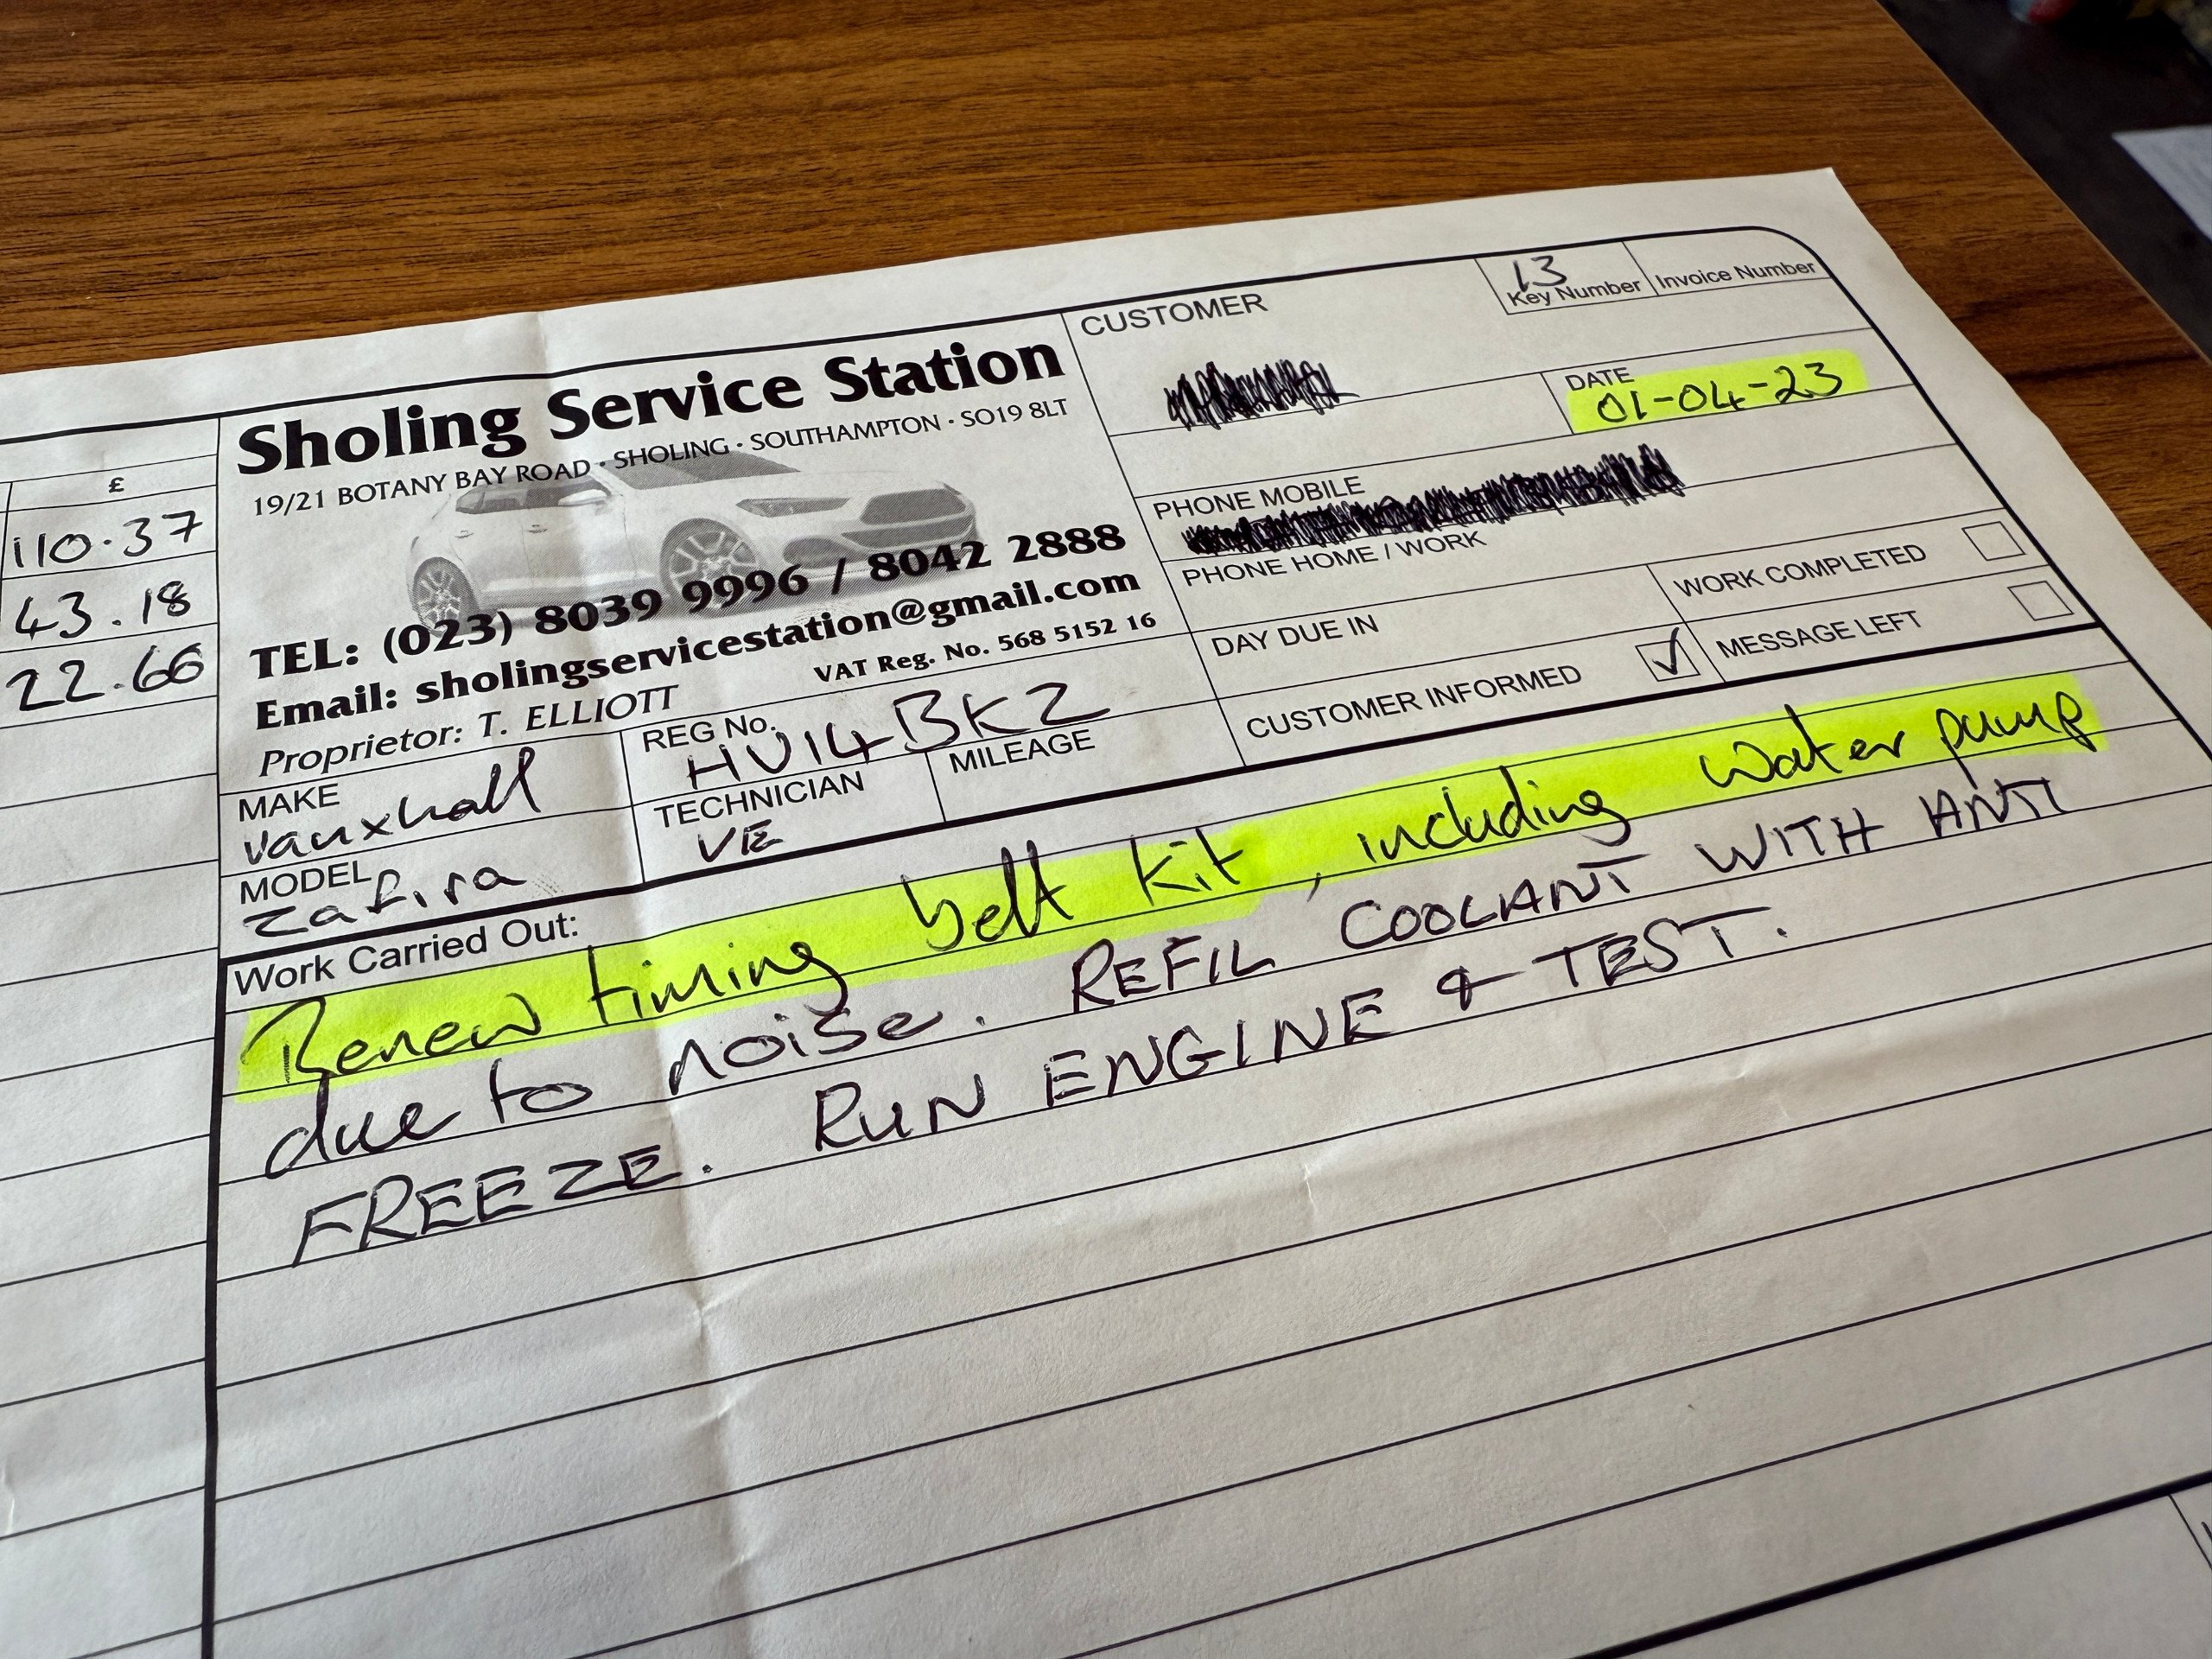 13
Key Number
Invoice Number
CUSTOMER
DATE
01-04-23
Sholing Service Station
19/21 BOTANY BAY ROAD · SHOLING · SOUTHAMPTON · SO19 8LT
PHONE MOBILE
PHONE HOME / WORK
TEL: (023) 8039 9996 / 8042 2888
Email: sholingservicestation@gmail.com
VAT Reg. No. 568 5152 16
Proprietor: T. ELLIOTT
DAY DUE IN
WORK COMPLETED
CUSTOMER INFORMED ✓
MESSAGE LEFT
£
110.37
43.18
22.66
MAKE
Vauxhall
REG No.
HV14BKZ
MODEL
Zafira
TECHNICIAN
VE
MILEAGE
Work Carried Out:
Renew timing belt kit, including water pump
due to noise. REFIL COOLANT WITH ANTI
FREEZE. RUN ENGINE & TEST.